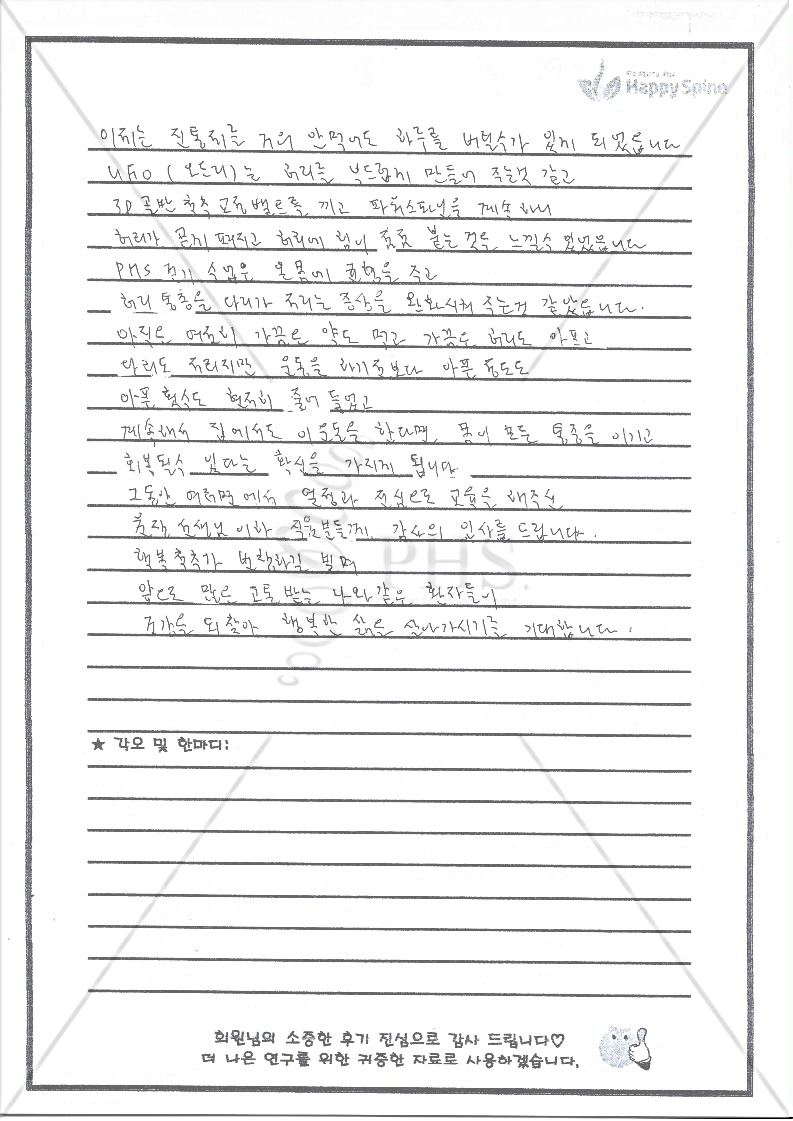 Happy Spine
이제는 진통제를 거의 안먹어도 하루를 버틸수가 있게 되었습니다
UFO (오뚜기)는 허리를 부드럽게 만들어 주는것 같고
3D 골반 척추 교정벨트를 끼고 파워스파인을 계속하니
허리가 곧게 펴지고 허리에 힘이 점점 붙는 것을 느낄수 있었습니다
PHS 걷기 수업은 온몸에 균형을 주고
허리 통증을 다리가 저리는 증상을 완화시켜 주는것 같았습니다.
아직은 여전히 가끔은 약도 먹고 가끔은 허리도 아프고
다리도 저리지만 운동을 하기전보다 아픈 정도도
아픈 횟수도 현저히 줄어 들었고
계속해서 집에서도 이운동을 한다면, 몸이 모든 통증을 이기고
회복될수 있다는 확신을 가지게 됩니다
그동안 여러면에서 열정과 진심으로 교육을 해주신
선생님 이하 직원분들께, 감사의 인사를 드립니다.
행복척추가 번창하길 빌며
PHS
앞으로 많은 고통 받는 나와같은 환자들이
건강을 되찾아 행복한 삶을 살아가시기를 기대합니다.
★ 각오 및 한마디:
회원님의 소중한 후기 진심으로 감사 드립니다♡
더 나은 연구를 위한 귀중한 자료로 사용하겠습니다.